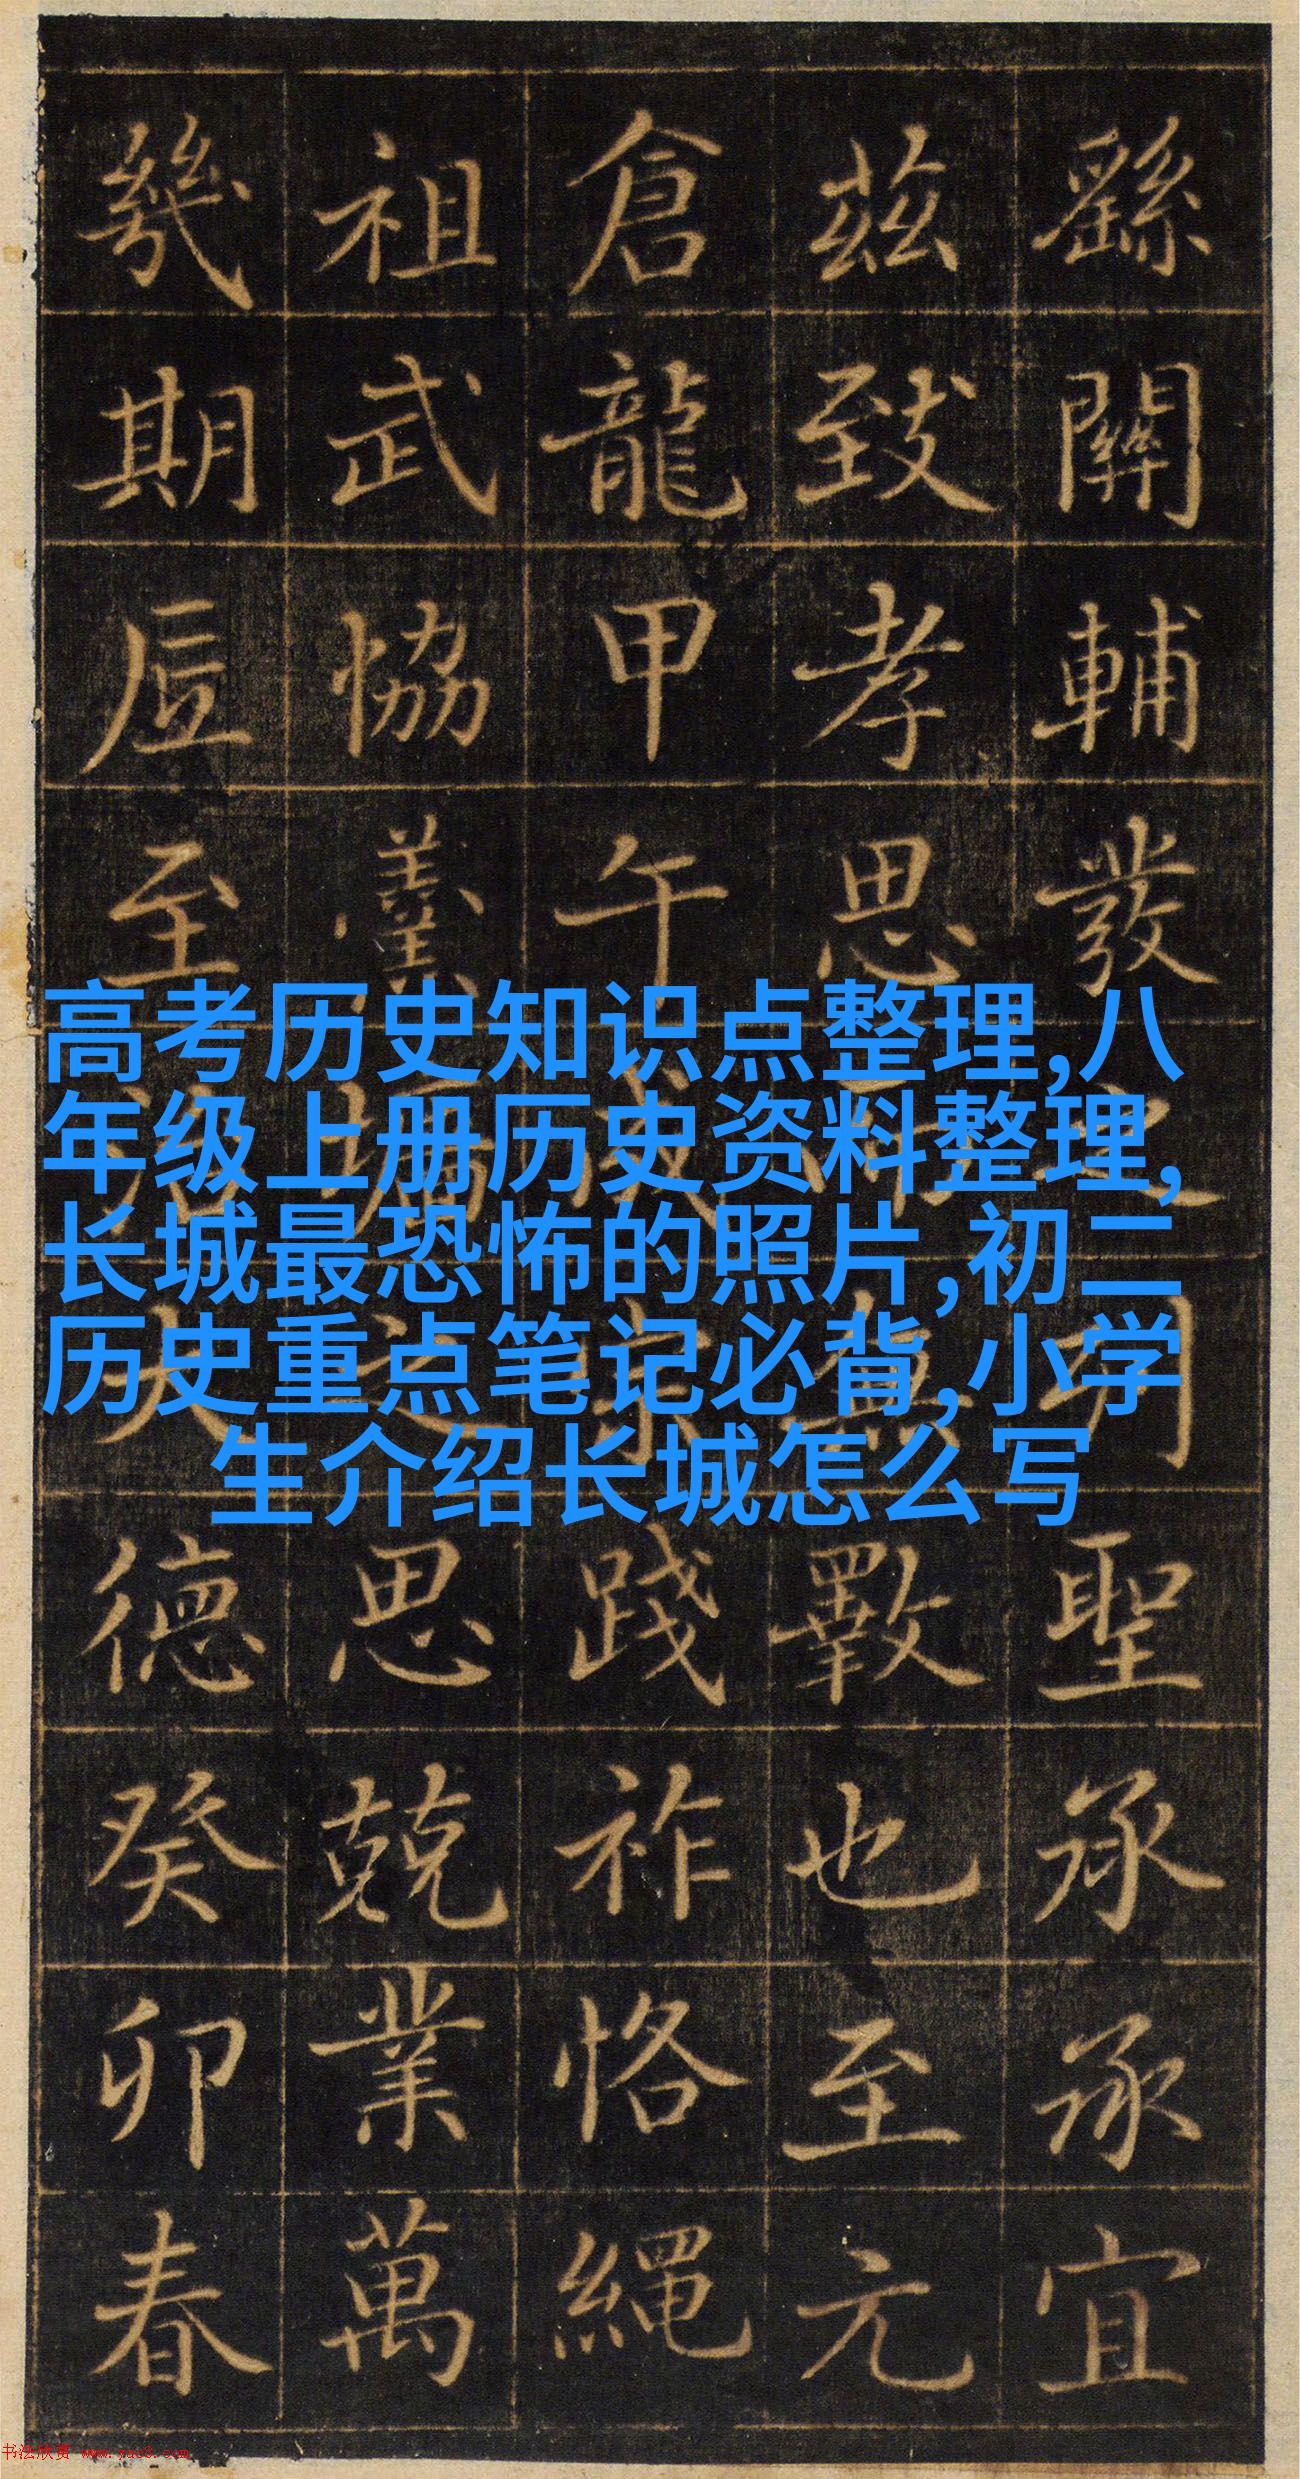 繇關輔發之明聖承承宜
茲致孝思而無斁也至元
倉龍甲午成宗踐祚恪繩
祖武協羹墻之思兢業萬
幾期底至治大德癸卯春
高考历史知识点整理,八
年级上册历史资料整理,
长城最恐怖的照片,初二
历史重点笔记必背,小学
生介绍长城怎么写
书法欣赏 www.yac8.com